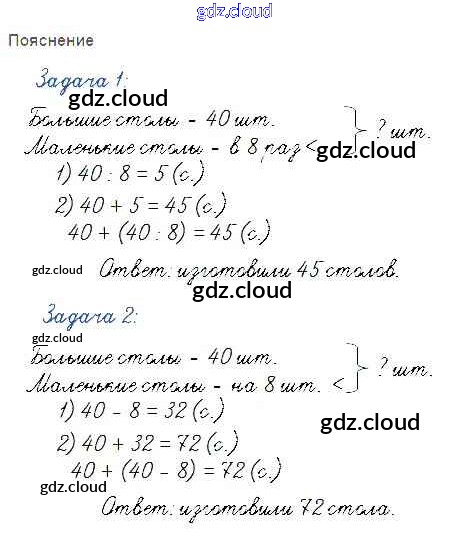 gdz.cloud
Пояснение
Задача 1:
gdz.cloud
Большие столы - 40 шт.
? шт.
Маленькие столы - в 8 раз <
gdz.cloud
1) 40 : 8 = 5 (с.)
2) 40 + 5 = 45 (с.)
40 + (40 : 8) = 45 (с.)
gdz.cloud
Ответ: изготовили 45 столов.
gdz.cloud
Задача 2:
gdz.cloud
Большие столы - 40 шт.
? шт.
Маленькие столы - на 8 шт. <
1) 40 - 8 = 32 (с.)
gdz.cloud
2) 40 + 32 = 72 (с.)
40 + (40 - 8) = 72 (с.)
gdz.cloud
Ответ: изготовили 72 стола.